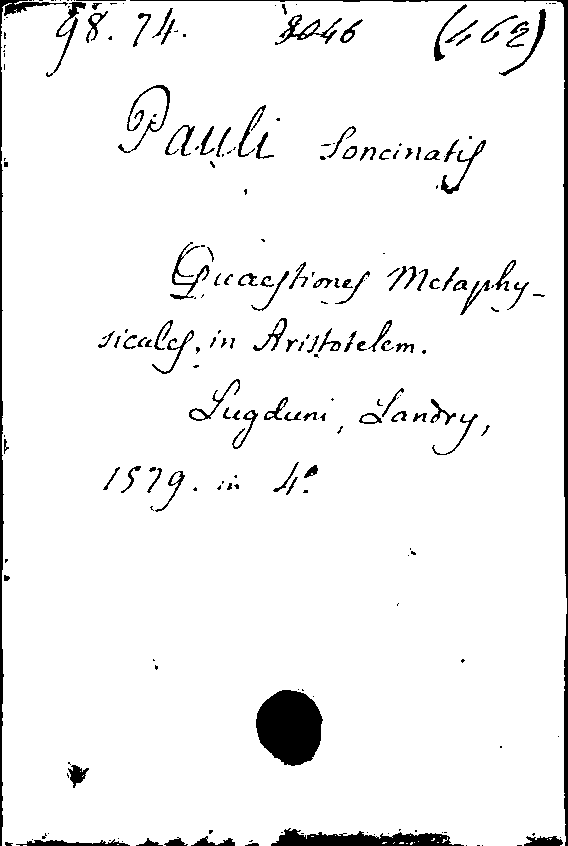 98. 74. 2046 (462)
Pauli Soncinatis
Quaestiones Metaphy-
sicales, in Aristotelem.
Lugduni, Landry,
1579. in 4º